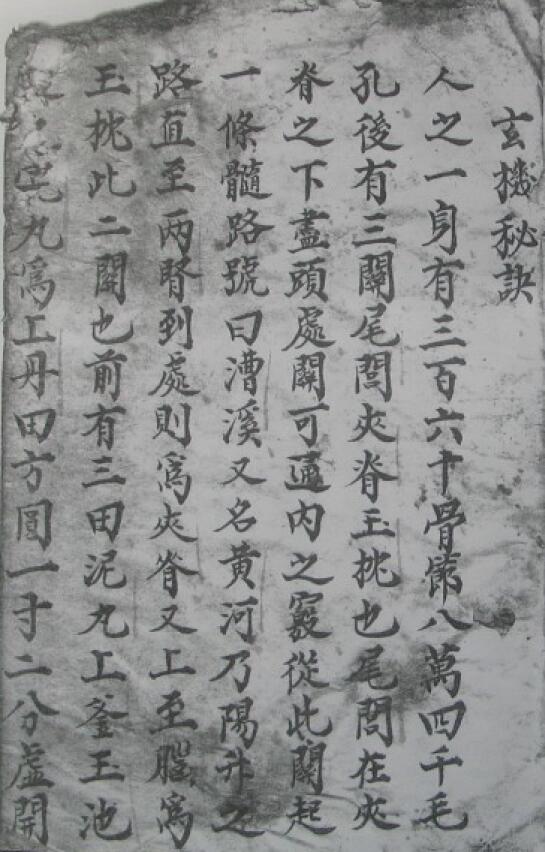 玄機秘訣
人之一身有三百六十骨節八萬四千毛
孔後有三關尾閭夾脊玉枕也尾閭在夾
脊之下盡頭處關可通內之竅從此關起
一條髓路號曰漕溪又名黃河乃陽升之
路直至两腎到處則爲夾脊又上至腦爲
玉枕此二關也前有三田泥丸上釜玉池
宅丸爲上丹田方圓一寸二分虛開